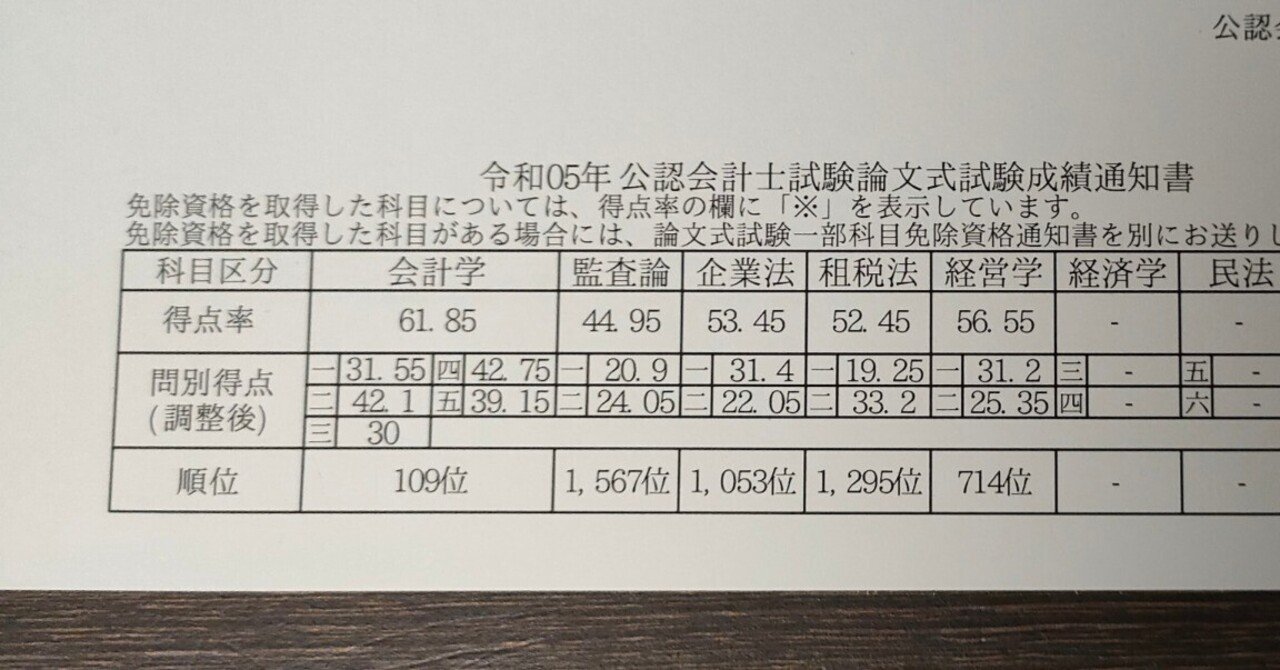 公認
令和05年 公認会計士試験論文式試験成績通知書
免除資格を取得した科目については、得点率の欄に「※」を表示しています。
免除資格を取得した科目がある場合には、論文式試験一部科目免除資格通知書を別にお送りし
科目区分 会計学 監査論 企業法 租税法 経営学 経済学 民法
得点率 61.85 44.95 53.45 52.45 56.55 - -
問別得点
(調整後)
一 31.55 四 42.75 一 20.9 一 31.4 一 19.25 一 31.2 三 - 五 -
二 42.1 五 39.15 二 24.05 二 22.05 二 33.2 二 25.35 四 - 六 -
三 30
順位 109位 1,567位 1,053位 1,295位 714位 - -